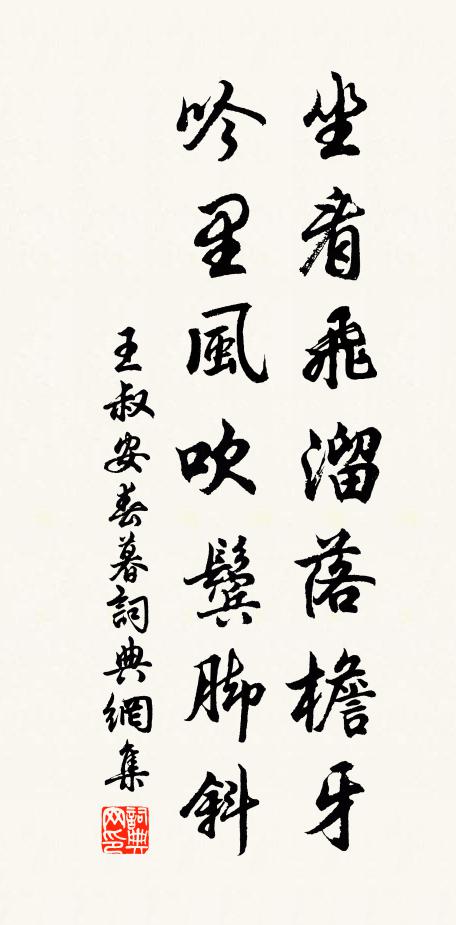 坐看飛溜落檐牙
吟里風吹鬓脚斜
王叔安春暮詞典網集
詞典网印